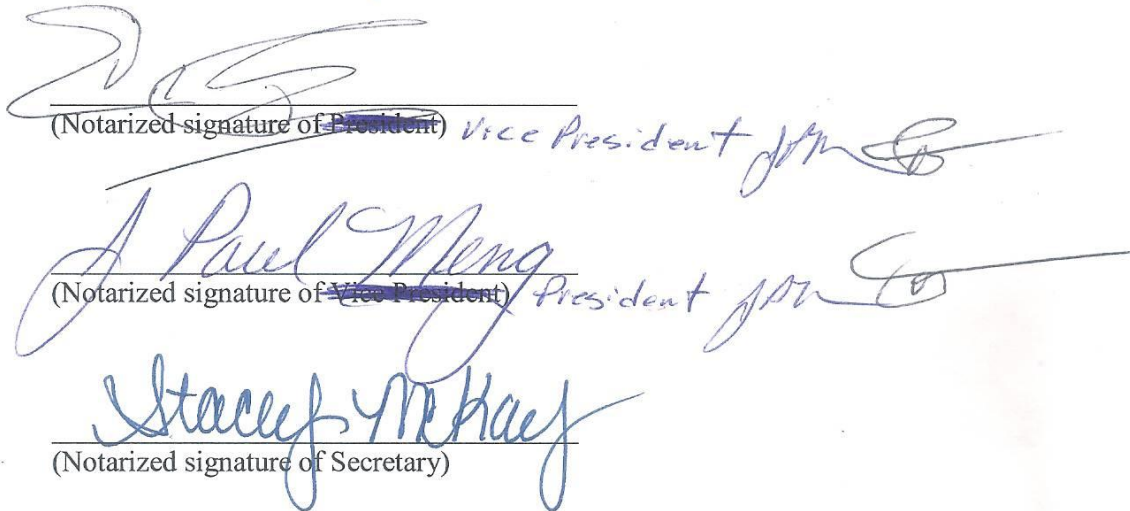 (Notarized signature of President) Vice President JPM
J Paul Meng
(Notarized signature of Vice President) President JPM
Stacey McKay
(Notarized signature of Secretary)